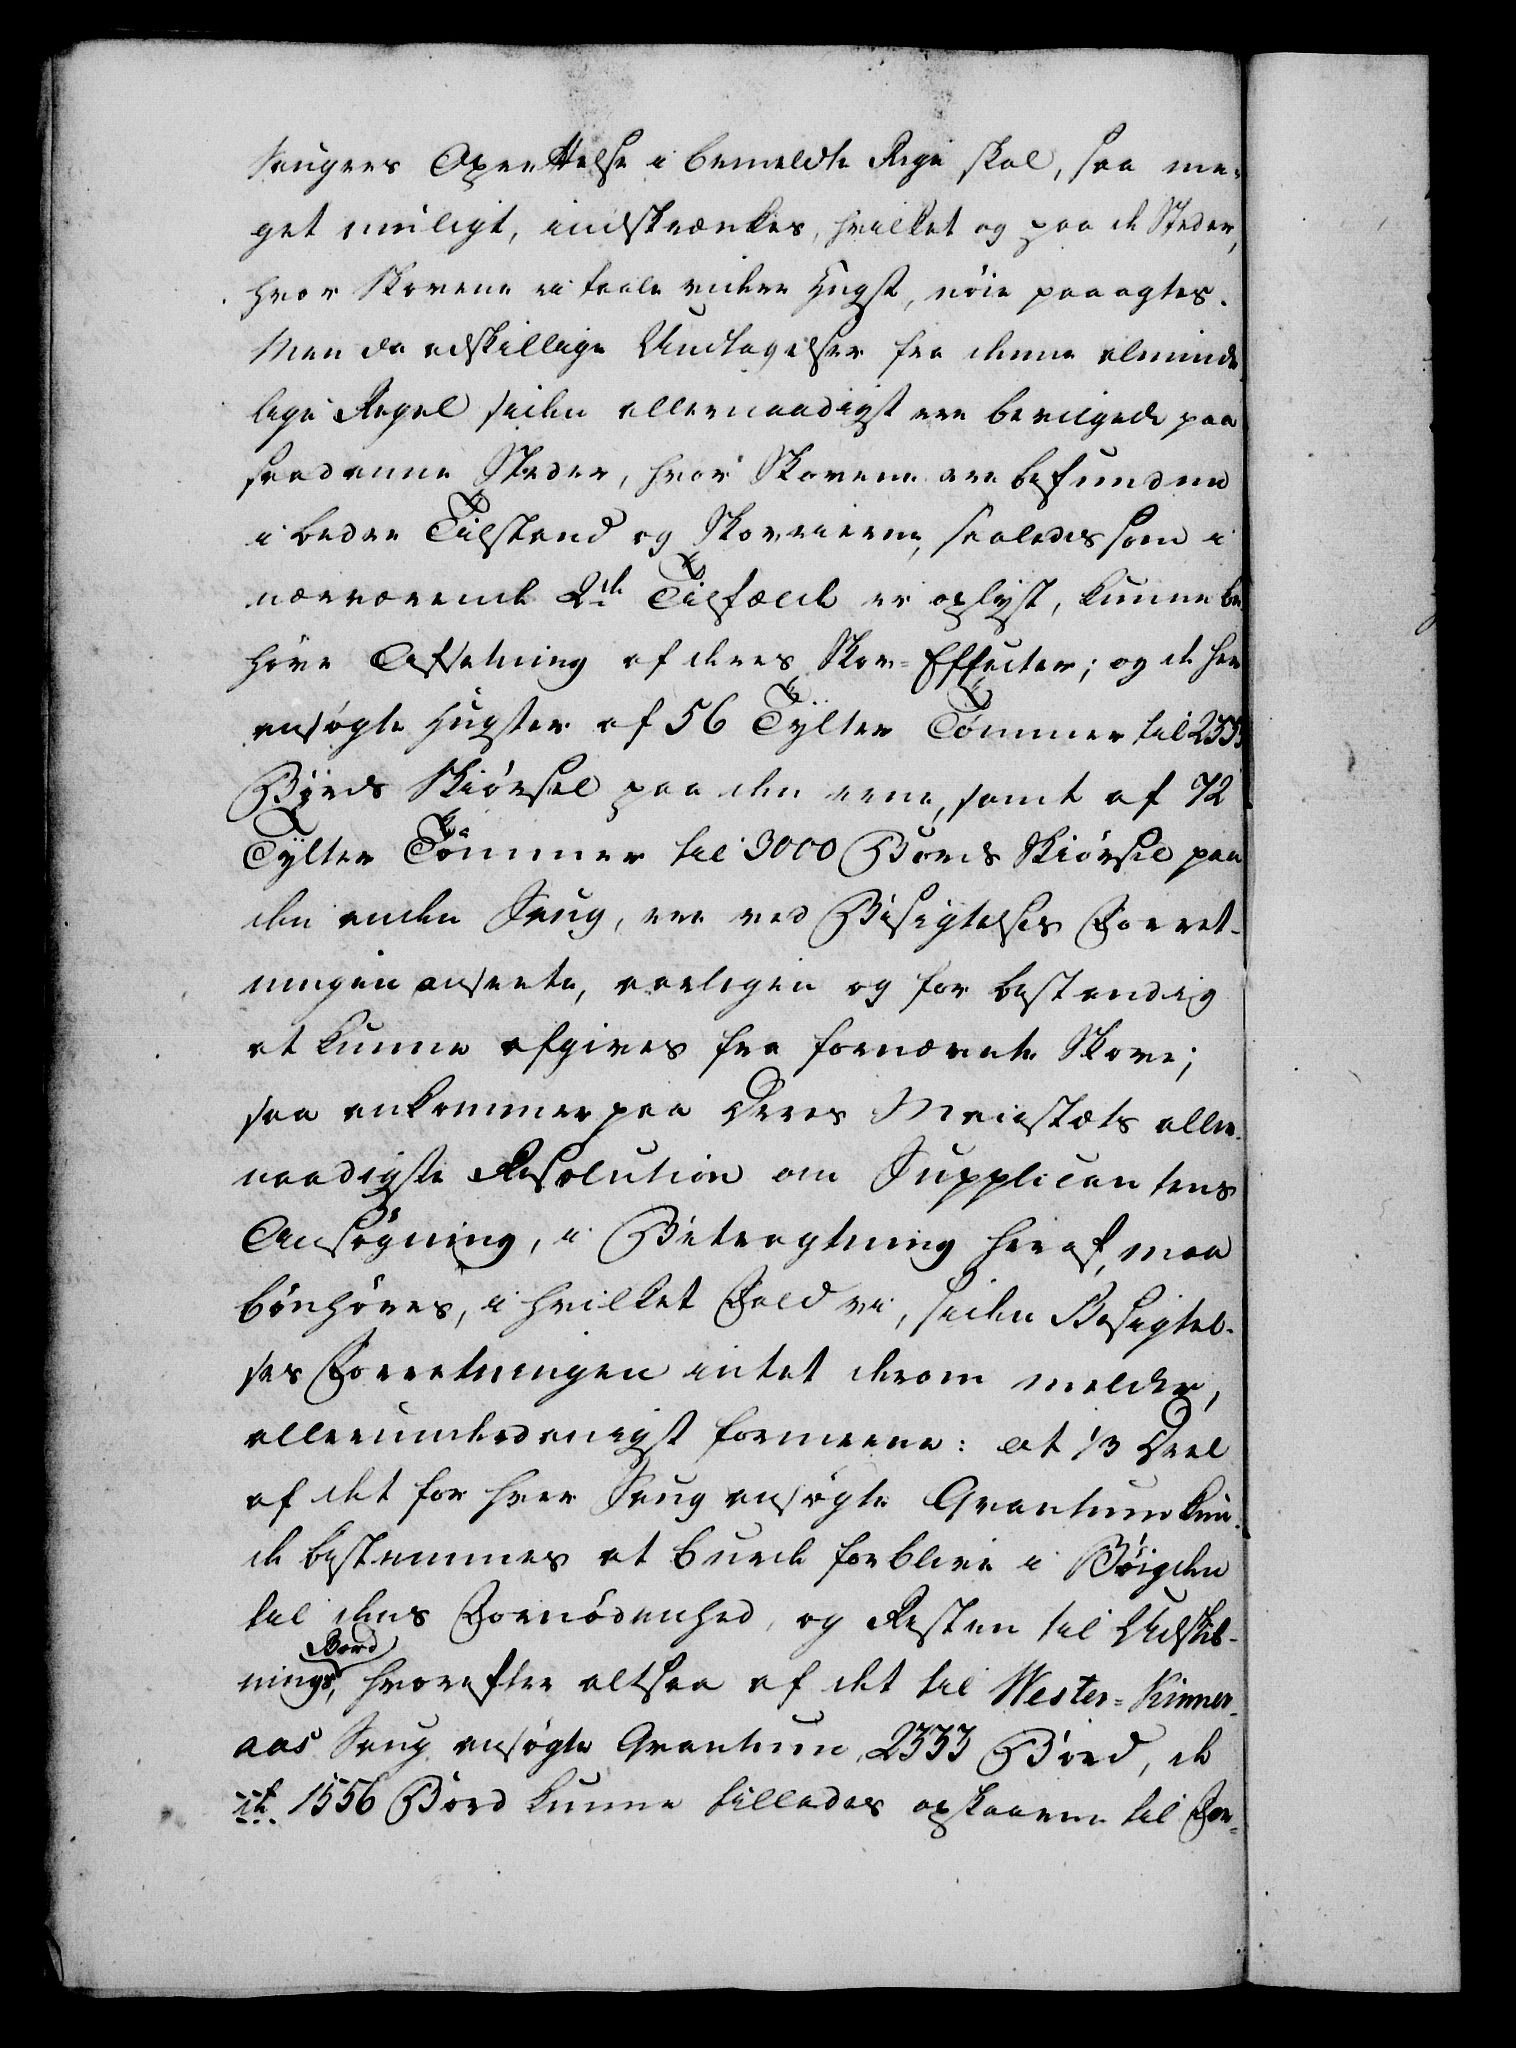 Saugers Oprettelse i bemeldte Rige skal, saa me-
get muligt, indskrænkes, hvilket og paa de Steder,
hvor Skovene ei taale videre Hugst, nöie paaagtes.
Men da adskillige Undtagelser fra denne almind-
lige Regel siden allernaadigst ere bevilgede paa
saadanne Steder, hvor Skovene ere befundne
i bedre Tilstand og Skoveierne, saaledes som i
nærværende 2de Tilfælde er oplyst, kunne be-
höve Afsætning af deres Skov-Effecter; og de her
ansögte Hugster af 56 Tylter Tömmer til 2333
Bords Skiörsel paa den eene, samt af 72
Tylter Tömmer til 3000 Bords Skiörsel paa
den anden Saug, ere ved Besigtelses Forret-
ningen ansete, aarligen og for bestandig
at kunne afgives fra fornævnte Skove;
saa ankommer paa Deres Maiestæts aller-
naadigste Resolution om Supplicantens
Ansögning, i Betragtning heraf, maa
bönhöres, i hvilket Fald vi, siden Besigtel-
ses Forretningen intet derom melder,
allerunderdanigst formeene: at 1/3 Deel
af det for hver Saug ansögte Qvantum kun-
de bestemmes at burde forblive i Böigden
til dens Fornödenhed, og Resten til Udskib-
nings Bord, hvorefter altsaa af det til Wester-Kimer-
aas Saug ansögte Qvantum, 2333 Bord, de
1556 Bord kunne tillades opskaarne til For-